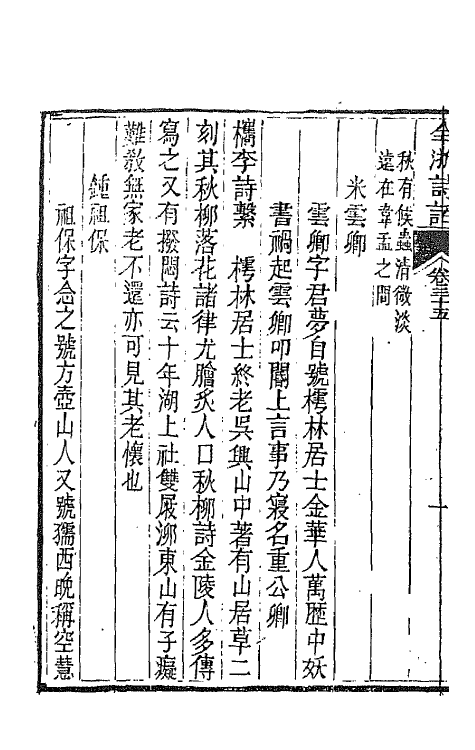 全浙詩話 卷三十五 一
秋有候蟲清微淡
遠在韋孟之間
米雲卿
雲卿字君夢自號樗林居士金華人萬歷中妖
書禍起雲卿叩閽上言事乃寢名重公卿
檇李詩繫 樗林居士終老吳興山中著有山居草二
刻其秋柳落花諸律尤膾炙人口秋柳詩金陵人多傳
寫之又有撥悶詩云十年湖上社雙屐浙東山有子癡
難敎無家老不還亦可見其老懷也
鍾祖保
祖保字念之號方壺山人又號孺西晚稱空慧